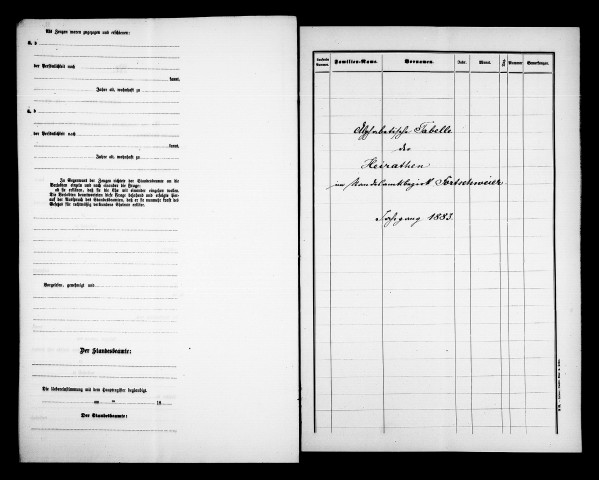 Als Zeugen waren zugezogen und erschienen:
3. d
der Persönlichkeit nach
kannt,
Jahre alt, wohnhaft zu
4. d
der Persönlichkeit nach
kannt,
Jahre alt, wohnhaft zu
In Gegenwart der Zeugen richtete der Standesbeamte an die
Verlobten einzeln und nach einander die Frage:
ob sie erklären, daß sie die Ehe mit einander eingehen wollen.
Die Verlobten beantworteten diese Frage bejahend und erfolgte hier-
auf der Ausspruch des Standesbeamten, daß er sie nunmehr kraft des
Gesetzes für rechtmäßig verbundene Eheleute erkläre.
Vorgelesen, genehmigt und
Der Standesbeamte:
Die Uebereinstimmung mit dem Hauptregister beglaubigt.
am ten 18
Der Standesbeamte:
Laufende Nummer. Familien-Name. Vornamen. Jahr. Monat. Tag. Nummer Bemerkungen.
Alphabetische Tabelle
der
Heirathen
im Standesamtsbezirk Fortschweier
Jahrgang 1883.